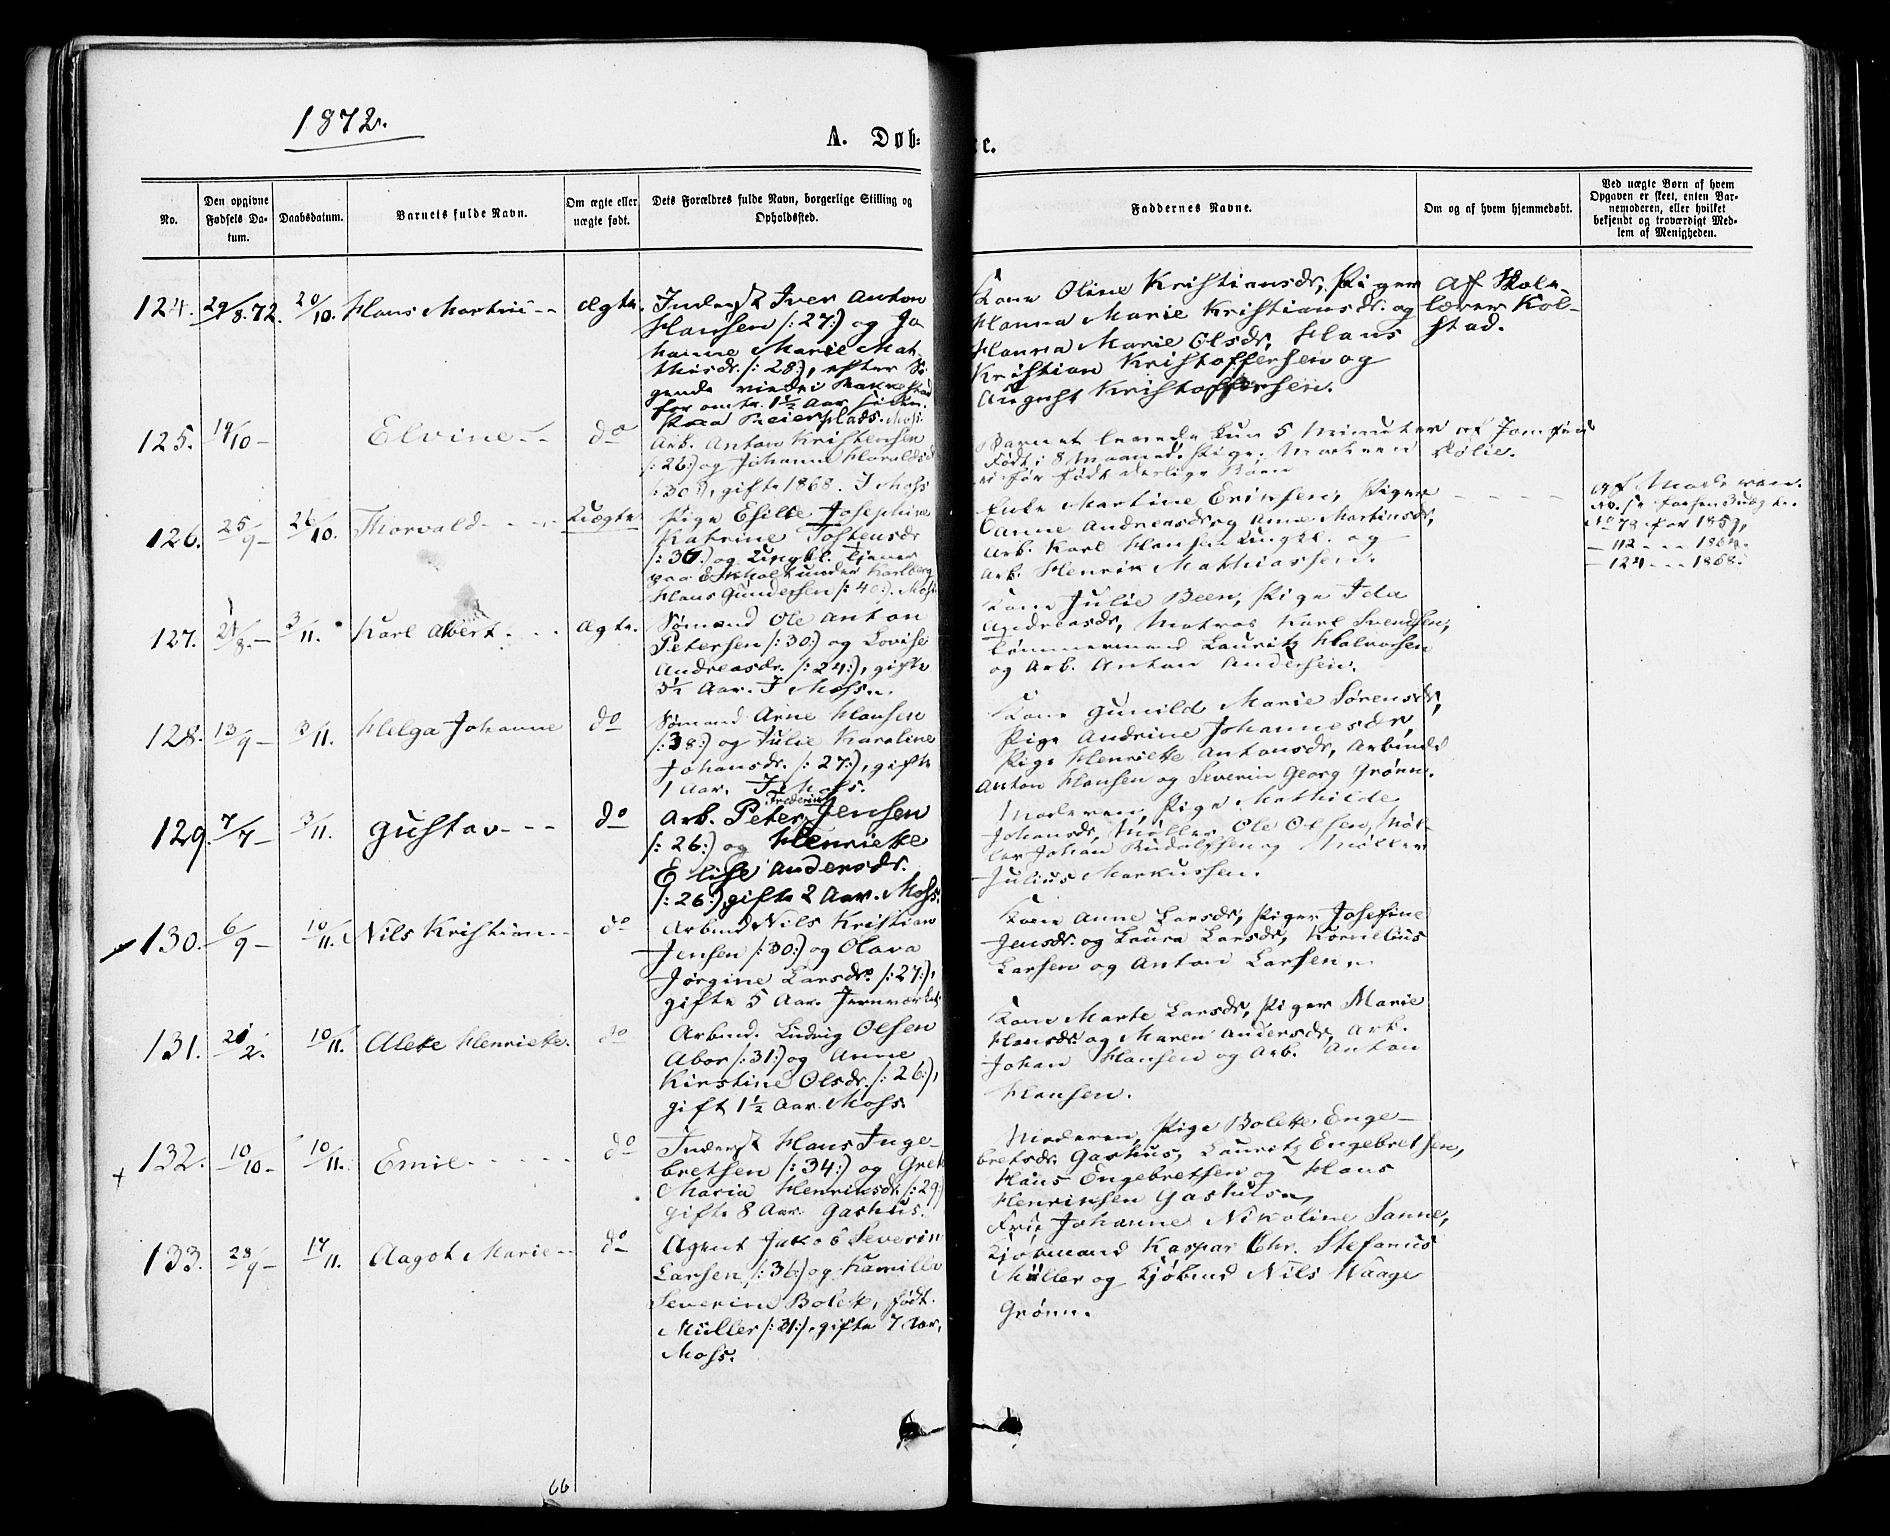 1872.
A. Døb-
te.
No.
Den opgivne Fødsels Da-tum.
Daabsdatum.
Barnets fulde Navn.
Om ægte eller uægte født.
Dets Forældres fulde Navn, borgerlige Stilling og Opholdssted.
Faddernes Navne.
Om og af hvem hjemmedøbt.
Ved uægte Børn af hvem Opgaven er skeet, enten Bar-nemoderen, eller hvilket bekjendt og troværdigt Med-lem af Menigheden.
124. 29/8.72. 20/10. Hans Martin -- Ægte.
Inderst Iver Anton
Hansen /:27:/ og Jo
hanne Marie Mat-
thisdr. /:28:/, efter Si
gende viede i
for omtr. 1½ Aar siden.
Paa Pleiersplads. Moss.
Kone Oline Kristiansdr, Piger
Hanna Marie Kristiansdr. og
Hanna Marie Olsdr, Hans
Kristian Kristoffersen og
August Kristoffersen.
Af Skole-
lærer Kol-
stad.
125. 19/10 - Elvine -- do
Arb. Anton Kristensen
/:26:/ og Johanne Haraldsd
/:30:/, gifte 1868. I Moss
Barnet levede kun 5 Minuter
Født i 8 Maaned. Pige. Moderen
før født Børn
af Jomfru
126. 25/9 - 26/10. Thorvald - - - Uægte
Pige Josephine
Katrine Tostensdr
/:36:/ og Ungkl. Tjener
paa under Karlberg
Hans Gundersen /:40:/. Moss
Enke Martine Eriksen, Piger
Anne Andreasdr og Anne Martinsdr,
Arb. Karl Hansen Ungkl. og
Arb. Henrik Mathiassen.
Af Moderen.
No 78 for 1859,
— 112 — 1864.
— 124 — 1868.
127. 21/8. - 3/11. Karl Albert - - - Ægte.
Sømand Ole Anton
Petersen /:30:/ og Lovise
Andreasdr. /:24:/, gifte
3½ Aar. I Moss.
Kone Julie Been, Pige Ida
Andreasdr, Matros Karl Svendsen,
Tømmermand Lauritz Halvorsen
og Arb. Anton Andersen.
128. 13/9 - 3/11. Helga Johanne do
Sømand Arne Hansen
/:38:/ og Julie Karoline
Johansdr. /:27:/, gifte
1 Aar. I Moss.
Kone Gunild Marie Sørensdr,
Pige Andrine Johannesdr,
Pige Henriette Antonsdr, Arbmd
Anton Hansen og Severin Georg Grønn.
129. 7/7 - 3/11. Gustav - - - do
Arb. Peter Frederik Jensen
/:26:/ og Henriette
Elise Andersdr.
/:26:/ gifte 2 Aar. Moss.
Moderen, Pige Mathilde
Johansdr, Møller Ole Olsen, Møl-
ler Johan Rudolfsen og Møller
Julius Markussen.
130. 6/9 - 10/11. Nils Kristian -- do
Arbmd Nils Kristian
Jensen /:30:/ og Olava
Jørgine Larsdr. /:27:/,
gifte 5 Aar. Jernværket
Kone Anne Larsdr, Piger Josefine
Jensdr. og Laura Larsdr, Kornelius
Larsen og Anton Larsen.
131. 2. 10/11. Alete Henriette. do
Arbmd. Ludvig Olsen
Abor /:31:/ og Anne
Kirstine Olsdr. /:26:/,
gift 1½ Aar. Moss.
Kone Marte Larsdr, Piger Marie
Hansdr og Maren Andersdr, Arb.
Johan Hansen og Arb. Anton
Hansen.
132. 10/10 - 10/11. Emil - - - - - do
Inderst Hans Inge-
bretsen /:34:/ og Grete
Maria Henriksdr. /:29:/
gifte 8 Aar. Gashus.
Moderen, Pige Bolette Enge-
bretsdr. Gashus, Lauritz Engebretsen,
Hans Engebretsen og Hans
Henriksen Gashus.
133. 23/9 - 17/11. Aagot Marie -- do
Agent Jakob Severin
Larsen, /:36:/ og Kamilla
Severine Bolette, født
Müller /:31:/, gifte 7 Aar,
Moss.
Johanne Nikoline Sanne,
Kjøbmand Kaspar Chr. Stefanus
Müller og Kjøbmd Nils Waage
Grønn.
66